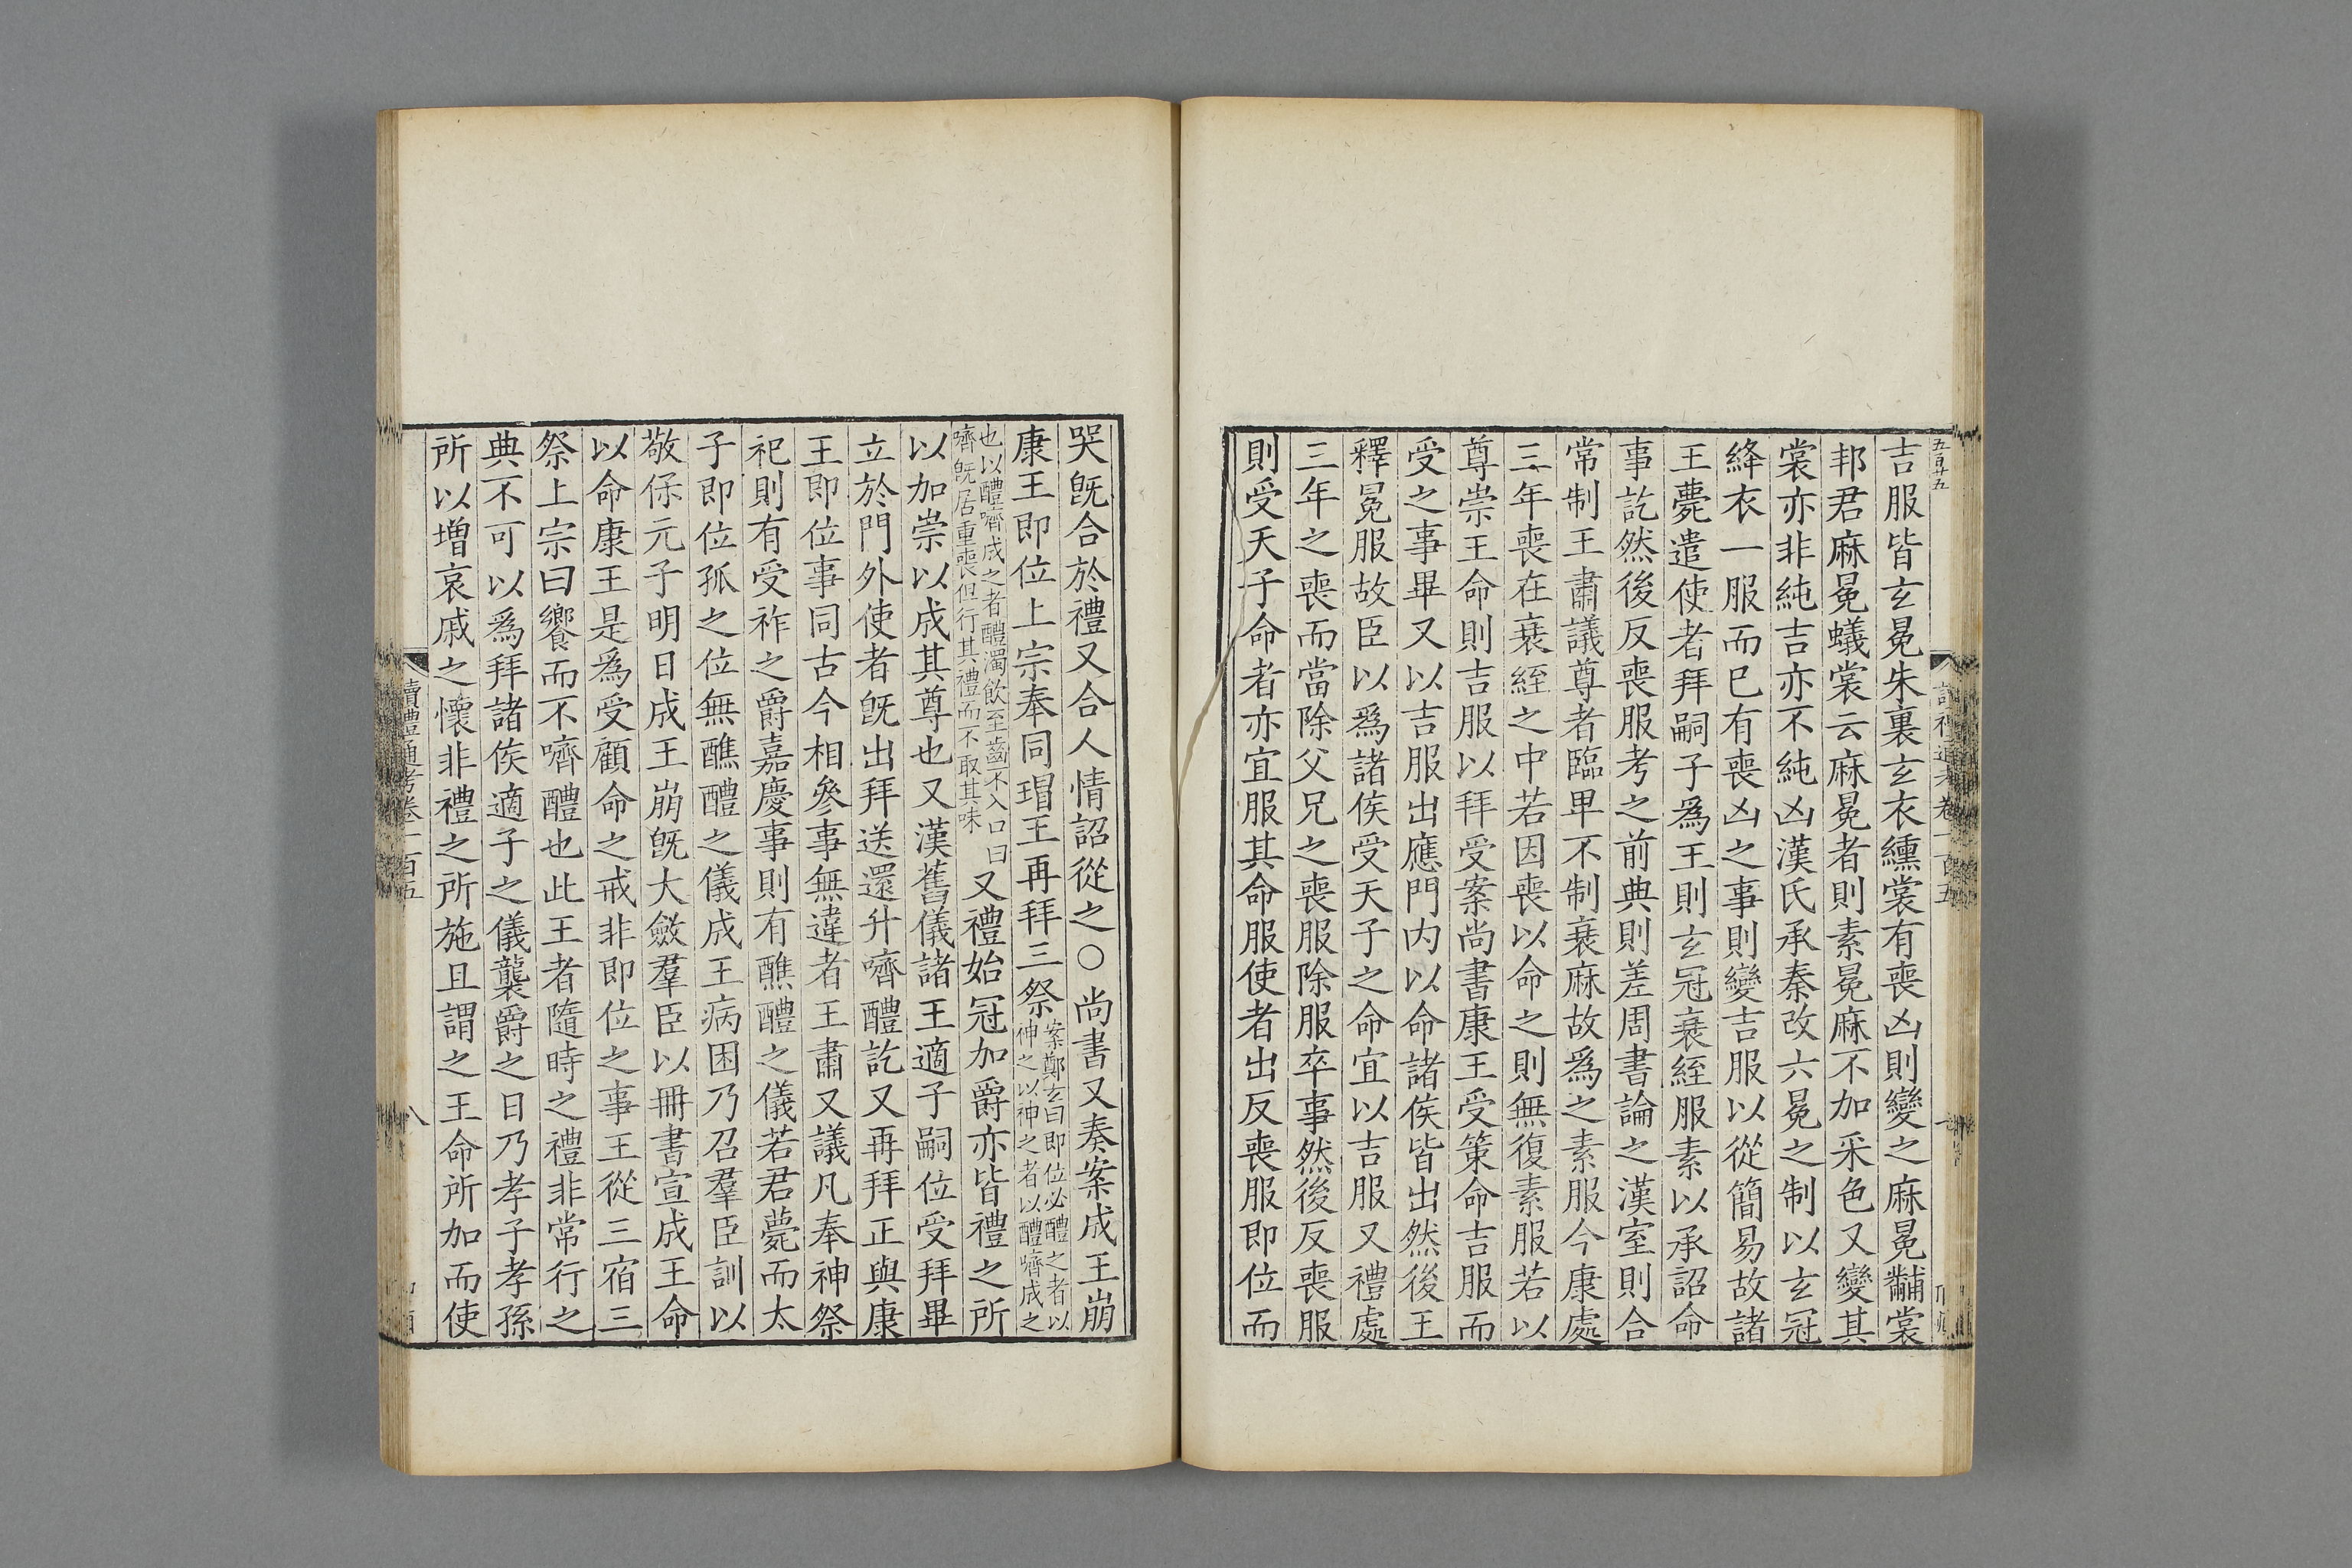 五百廿五
吉服皆玄冕朱裏玄衣纁裳有喪凶則變之麻冕黼裳
邦君麻冕蟻裳云麻冕者則素冕麻不加采色又變其
裳亦非純吉亦不純凶漢氏承秦改六冕之制以玄冠
絳衣一服而已有喪凶之事則變吉服以從簡易故諸
王薨遣使者拜嗣子爲王則玄冠衰絰服素以承詔命
事訖然後反喪服考之前典則差周書論之漢室則合
常制王肅議尊者臨卑不制衰麻故爲之素服今康處
三年喪在衰絰之中若因喪以命之則無復素服若以
尊崇王命則吉服以拜受案尚書康王受策命吉服而
受之事畢又以吉服出應門内以命諸侯皆出然後王
釋冕服故臣以爲諸侯受天子之命宜以吉服又禮處
三年之喪而當除父兄之喪服除服卒事然後反喪服
則受天子命者亦宜服其命服使者出反喪服即位而
哭旣合於禮又合人情詔從之○尚書又奏案成王崩
康王即位上宗奉同瑁王再拜三祭案鄭玄曰即位必醴之者以
神之以神之者以醴嚌成之
也以醴嚌成之者醴濁飲至齒不入口曰
嚌旣居重喪但行其禮而不取其味又禮始冠加爵亦皆禮之所
以加崇以成其尊也又漢舊儀諸王適子嗣位受拜畢
立於門外使者旣出拜送還升嚌醴訖又再拜正與康
王即位事同古今相參事無違者王肅又議凡奉神祭
祀則有受祚之爵嘉慶事則有醮醴之儀若君薨而太
子即位孤之位無醮醴之儀成王病困乃召羣臣訓以
敬保元子明日成王崩旣大斂羣臣以冊書宣成王命
以命康王是爲受顧命之戒非即位之事王從三宿三
祭上宗曰饗而不嚌醴也此王者隨時之禮非常行之
典不可以爲拜諸侯適子之儀襲爵之日乃孝子孝孫
所以增哀戚之懷非禮之所施且謂之王命所加而使
讀禮通考卷一百五
八